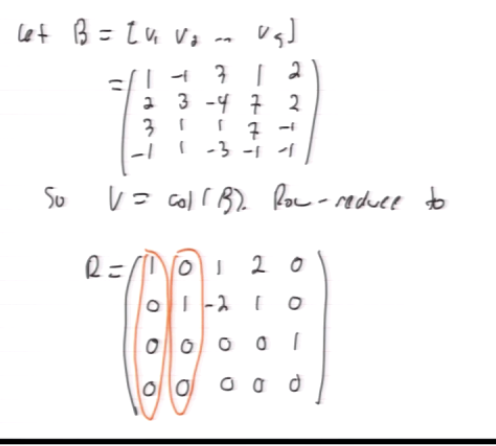 Let B = [v₁ v₂ ... v₅]
= ( 1 -1 3 1 2
2 3 -4 7 2
3 1 1 7 -1
-1 1 -3 -1 -1 )
So V = col(B). Row-reduce to
R = ( 1 0 1 2 0
0 1 -2 1 0
0 0 0 0 1
0 0 0 0 0 )